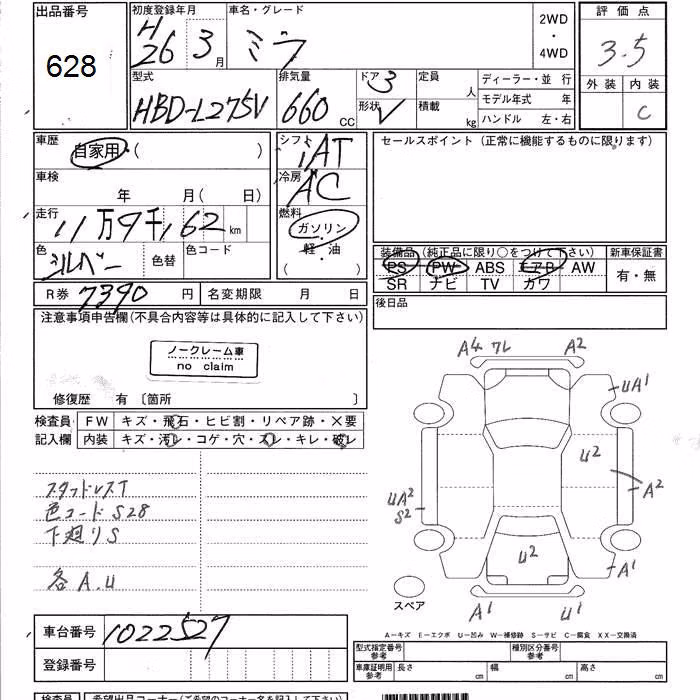 出品番号
628
初度登録年月
H
26 3月
車名・グレード
ミラ
2WD
・
4WD
評価点
3.5
外装 内装
C
型式
HBD-L275V
排気量
660 CC
ドア 3
形状 V
定員
人
積載
kg
ディーラー・並 行
モデル年式 年
ハンドル 左・右
車歴
自家用・( )
車検
年 月( 日)
走行
11万9千,162 km
色
シルバー
色替
色コード
R券 7390 円
名変期限 月 日
シフト
iAT
冷房
AC
燃料
ガソリン
・
軽・油
( ・ )
セールスポイント (正常に機能するものに限ります)
装備品 (純正品に限り○をつけて下さい)
PS PW ABS エアB AW
SR ナビ TV カワ
新車保証書
有・無
後日品
注意事項申告欄(不具合内容等は具体的に記入して下さい)
ノークレーム車
no claim
修復歴 有 〔箇所 〕
検査員
記入欄
FW キズ・飛石・ヒビ割・リペア跡・×要
内装 キズ・汚レ・コゲ・穴・スレ・キレ・破レ
スタッドレスT
色コードS28
下廻りS
各A.U
A4 フレ A2
UA1
U2
A2
UA2
S2
U2
A1
A1 U1
スペア
A-キズ E-エクボ U-凹み W-補修跡 S-サビ C-腐食 XX-交換済
車台番号 1022527
登録番号
型式指定番号
参考
種別区分番号
参考
車庫証明用
参考
長さ cm 幅 cm 高さ cm
検査員
希望出品コーナー(ご希望のコーナー名を